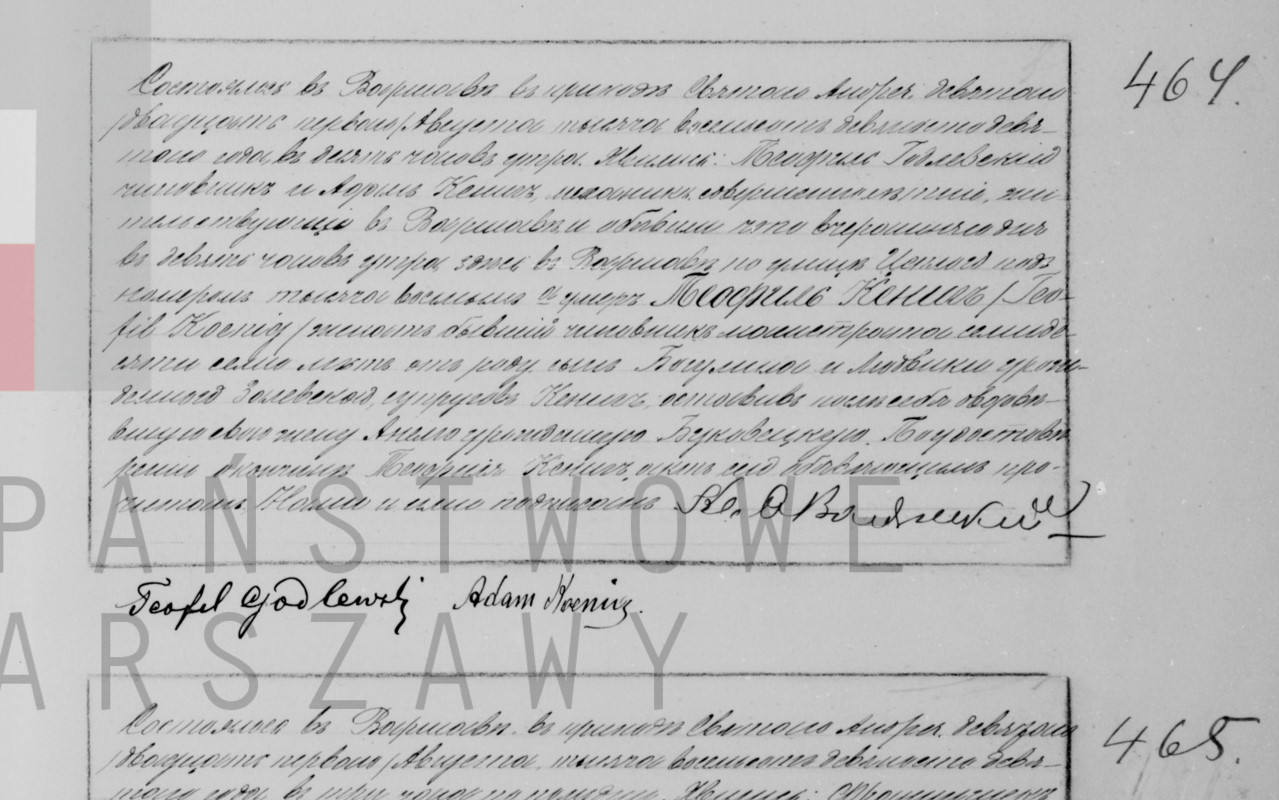 464.
Состоялось въ Варшавѣ въ приходѣ Святаго Андрея девятаго
/двадцать перваго/ Августа тысяча восемьсотъ девяносто девя-
таго года въ десять часовъ утра. Явились: Теофиль Годлевскій
чиновникъ и Адамъ Кенигъ, механикъ, совершеннолѣтніе, жи-
тельствующіе въ Варшавѣ и объявили что вчерашняго дня
въ девять часовъ утра здѣсь въ Варшавѣ по улицѣ Цеплой подъ
номеромъ тысяча восьмымъ умеръ Теофиль Кенигъ /Teo-
fil Koenig/ женатъ бывшій чиновникъ магистрата семиде-
сяти семи лѣтъ отъ роду сынъ Богумила и Людвики урож-
денной Залевской, супруговъ Кенигъ, оставивъ послѣ себя овдовѣ-
вшую свою жену Анелю урожденную Буковецкую. По удостовѣ-
реніи о кончинѣ Теофиля Кенигъ, актъ сей объявляющимъ про-
читанъ Нами и ими подписанъ
Teofil Godlewski Adam Koenig.
465.
Состоялось въ Варшавѣ въ приходѣ Святаго Андрея девятаго
/двадцать перваго/ Августа тысяча восемьсотъ девяносто девя-
таго года въ три часа по полудни. Явились:
PAŃSTWOWE
ARSZAWY